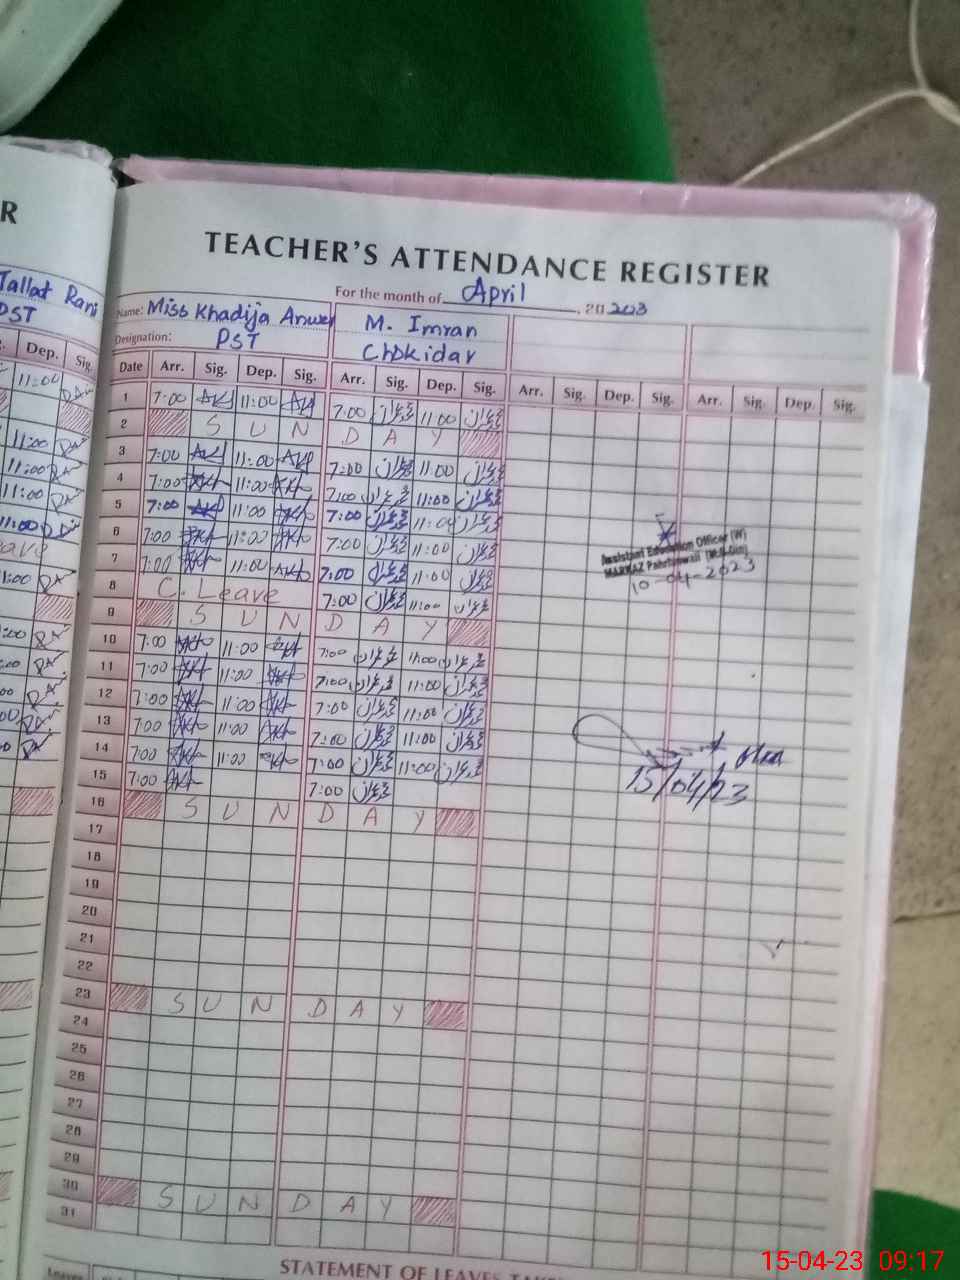 R
Tallat Rani
PST
Dep. Sig.
11:00
11:00
11:00
11:00
11:00
TEACHER'S ATTENDANCE REGISTER
For the month of April, 20 2023
Name: Miss Khadija Anwer M. Imran
Designation: PST Chokidar
Date Arr. Sig. Dep. Sig. Arr. Sig. Dep. Sig. Arr. Sig. Dep. Sig. Arr. Sig. Dep. Sig.
1 7:00 11:00 7:00 عمران 11:00 عمران
2 S U N D A Y
3 7:00 11:00 7:00 عمران 11:00 عمران
4 7:00 11:00 7:00 عمران 11:00 عمران
5 7:00 11:00 7:00 عمران 11:00 عمران
6 7:00 11:00 7:00 عمران 11:00 عمران
7 7:00 11:00 7:00 عمران 11:00 عمران
8 C. Leave 7:00 عمران 11:00 عمران
9 S U N D A Y
10 7:00 11:00 7:00 عمران 11:00 عمران
11 7:00 11:00 7:00 عمران 11:00 عمران
12 7:00 11:00 7:00 عمران 11:00 عمران
13 7:00 11:00 7:00 عمران 11:00 عمران
14 7:00 11:00 7:00 عمران 11:00 عمران
15 7:00 7:00 عمران
16 S U N D A Y
17
18
19
20
21
22
23 S U N D A Y
24
25
26
27
28
29
30 S U N D A Y
31
Assistant Education Officer (W)
MARKAZ Pahrianwali (M.B.Din)
10-04-2023
15/04/23
Leaves
STATEMENT OF LEAVES TAKEN
15-04-23 09:17